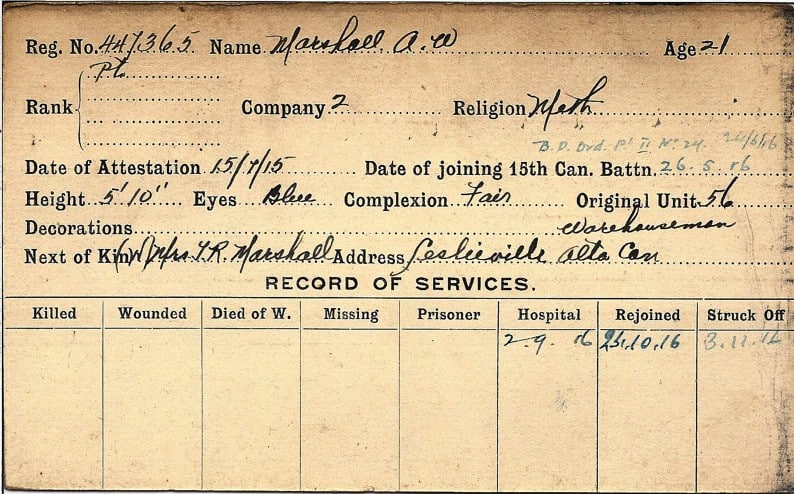 Reg. No. 447365 Name Marshall A. W Age 21
Pt.
Rank Company 2 Religion Meth
B.D. Ord. Pt II No 24. 24/6/16
Date of Attestation 15/7/15 Date of joining 15th Can. Battn. 26.5.16
Height 5' 10" Eyes Blue Complexion Fair Original Unit 56
Decorations Warehouseman
Next of Kin (W) Mrs T. R. Marshall Address Leslieville Alta Can
RECORD OF SERVICES.
Killed Wounded Died of W. Missing Prisoner Hospital Rejoined Struck Off
2.9.16 25.10.16 3.11.16